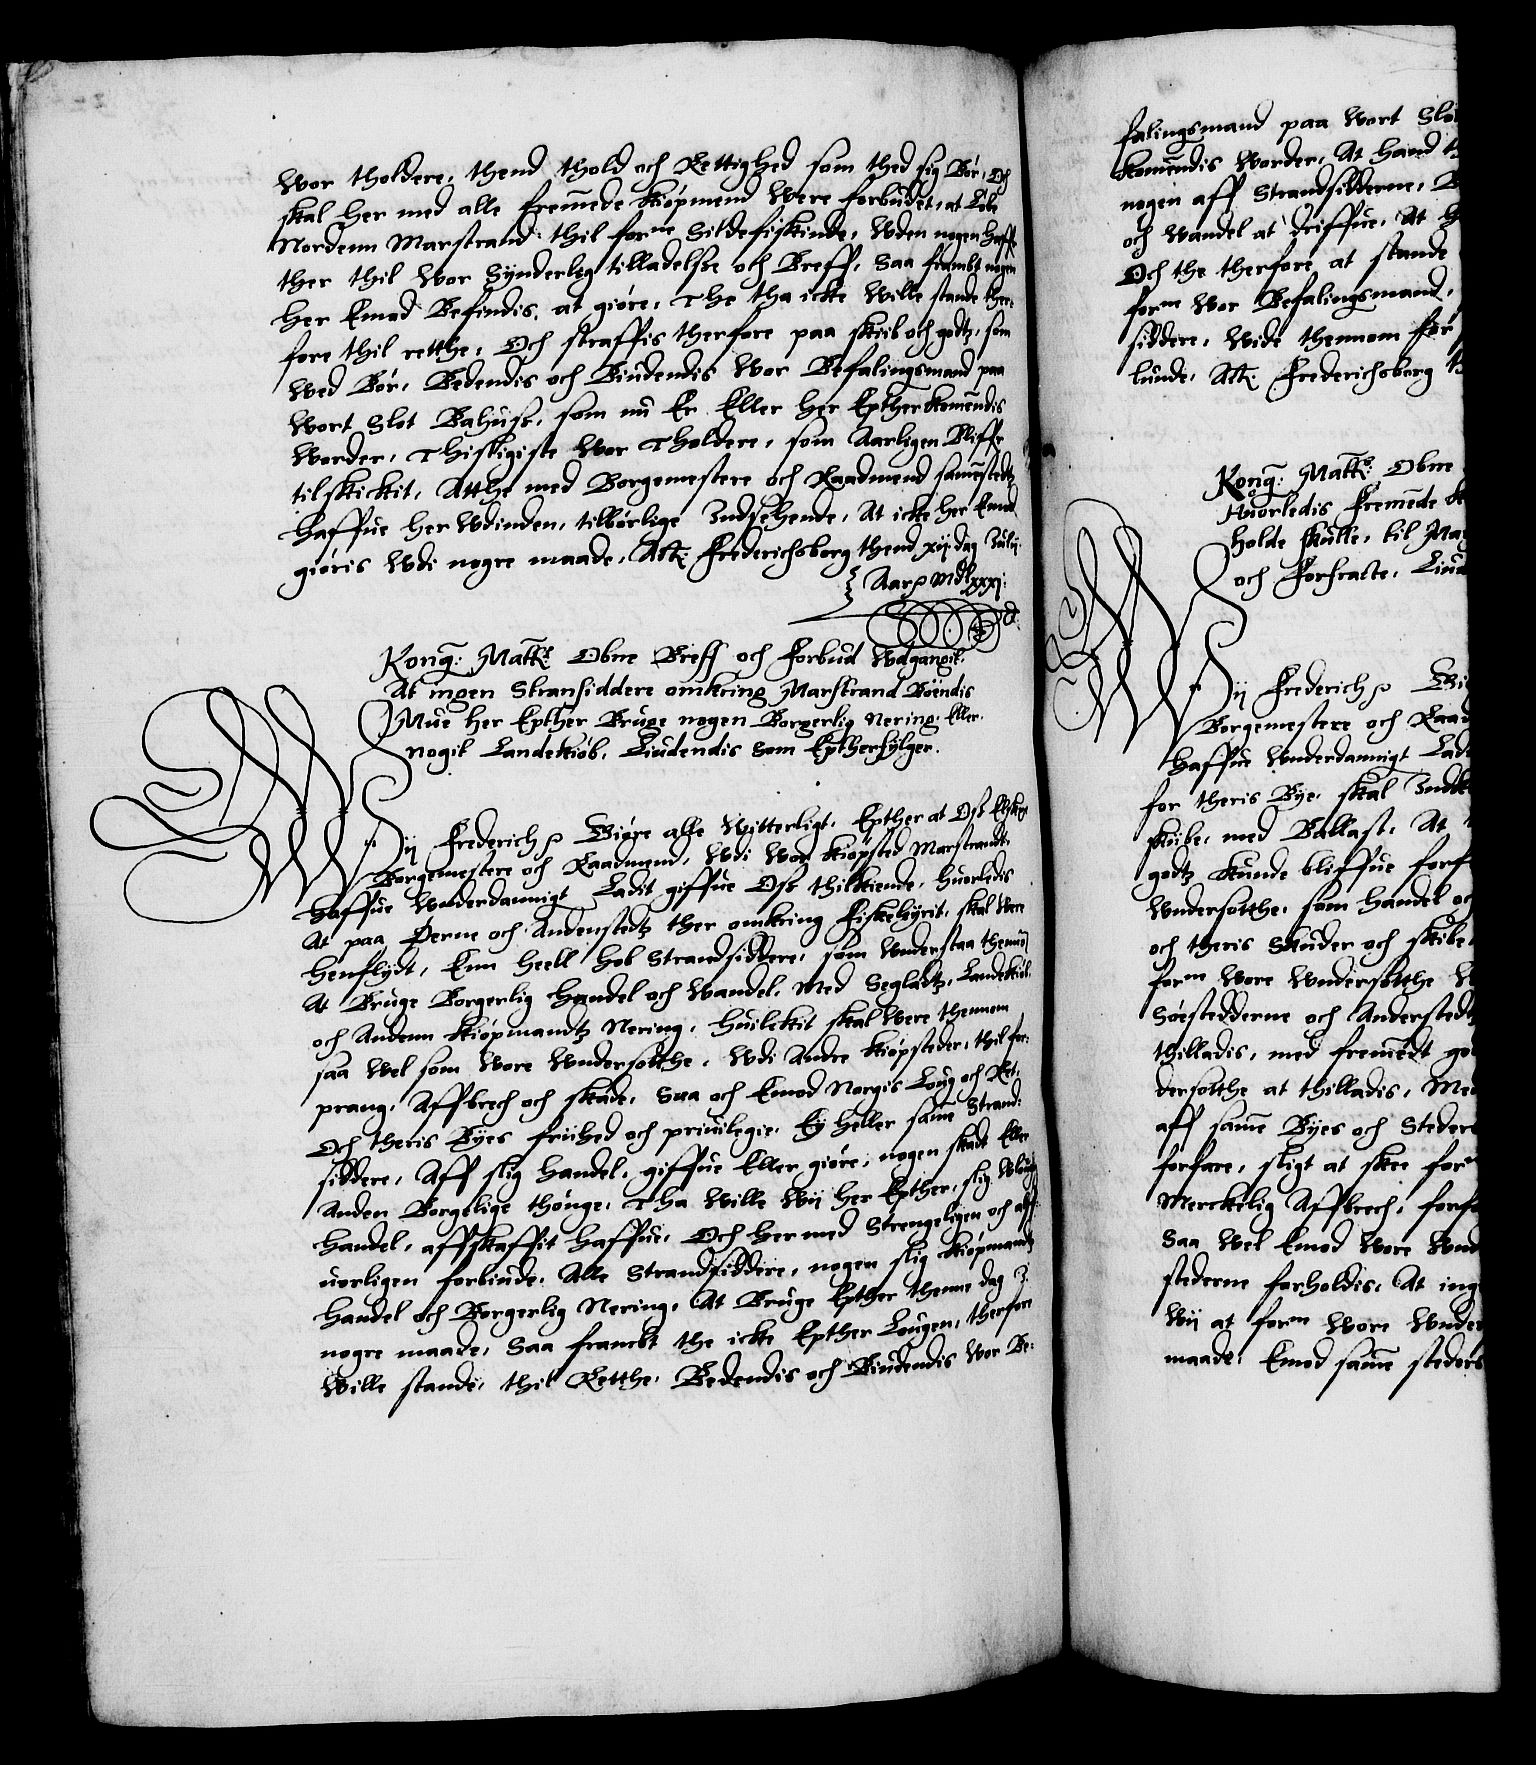 Wor tholdere, thend thold och Rettighed som thed sig Bør, Och
skal her med alle fremede kiøpmend were forbudet, at Løbe
Norden Marstrand thil forne Sildefiskinde, Uden nogen haffe
ther thil Wor Synderlig tilladelse och Breff, Saa frambt nogen
her Emod Befindis, at giøre, The tha icke wille stande ther
fore thil retthe, Och straffis therfore paa skiib och godtz, som
wed Bør, Bedendis och Biudendis Wor Befalingsmand paa
wort Slot Bahuss, som nu Er Eller her Eptherkomendis
worder, Thisligiste Wor Tholdere, som Aarligen Bliffr
tilskickit, Atthe med Borgemestere och Raadmend samestedtz
haffue her Udinden, tilbørlige Indsehende, At icke her Emod
giøris Udi nogre maade, Actt. Frederichsborg thend xij dag Julij
Aar mdlxxxj.
Konng: Matts: Obne Breff och Forbud Udgangit,
At ingen Stransiddere omkring Marstrand Boendis
Mue her Epther Bruge nogen Borgerlig Nering, Eller
nogit Landekiøb, Liudendis Som Eptherfylger.
Wij Frederich Giøre alle Witterligt, Epther at Oss Elskng
Borgemestere och Raadmend, Udi Wor kiøpsted Marstrandt
haffue Underdannigt Ladit giffue Oss thilkiende, Huorledis
At paa Øerne och Andenstedtz ther omkring Fiskehyrit, skal were
henflydt, Enn heell hob Strandsiddere, som Understaa thennom
At Bruge Borgerlig handel och Wandel, Med Segladtz, Landekiøb,
och Andenn kiøpmandtz Nering, Huilckit skal were thennom
saa wel som Wore Undersotthe, Udi Andre kiøpsteder, thil for:
prang, Affbrech och skade, Saa och Emod Norgis Loug och Ret,
Och theris Byes friihed och priuilegie, Ey heller same Strand:
siddere, Aff slig handel, giffue Eller giøre, nogen skadt Eller
Anden Borgelige thønge, Tha wille Wij her Epther, slig Ulouglig
handel, affskaffit haffue, Och her med Strengeligen och alff
uorligen forbiude, Alle Strandsiddere, nogen slig kiøpmandtz
handel och Borgerlig Nering, At Bruge Epther thenne dag I
nogre maade, Saa frambt the icke Epther Lougen, therfore
wille stande, thil Retthe, Bedendis och Biudendis Wor Be:
falingsmand paa Wort Slot
komendis worder, At hand
nogen aff Strandsidderne,
och wandel at driffue, At
Och the therfore at stande
forne Wor Befalingsmand,
siddere, Wide thennom for
lunde, Actt. Frederichsborg
Konng: Matts: Obne
Huorledis Fremede
holde skulle, til
och Forfracte,
Wij Frederich
Borgemestere och
haffue Underdannigt
for theris Bye, skal
skiibe, med Ballast, At
godtz kunde bliffue
Undersotthe, som handel och
och theris Skuder och skibe,
forne Wore Undersotthe
Søestedderne och Anderstedtz
thilladis, med fremedt
dersotthe at thilladis,
aff same Byes och
forfare, sligt at skee forne
Merckelig Affbrech,
Saa wel Emod Wore
stederne forholdis, At
Wij at forne Wore
maade, Emod same steders